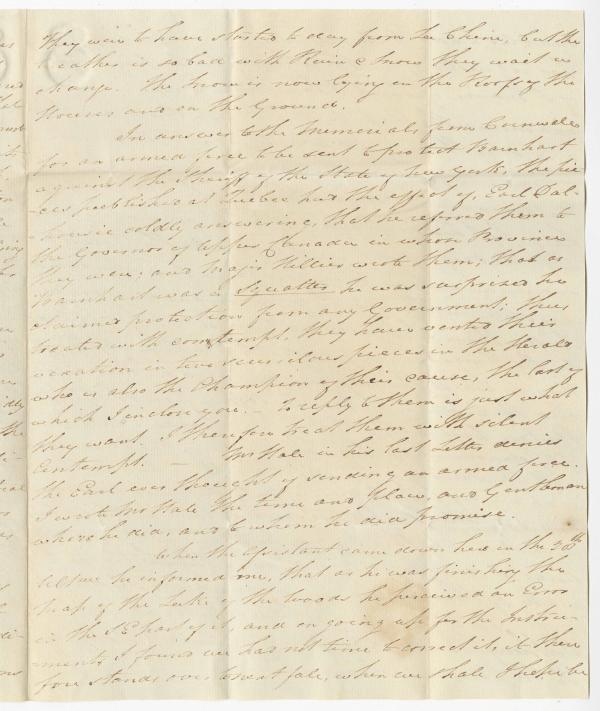 They were to have started to day from La Chine, but the
weather is so bad with Rain & Snow they wait a
change. The Snow is now lying on the Roofs of the
Houses and on the Ground.
In answer to the Memorials from Cornwall
for an armed force to be sent to protect Barnhart
against the Sheriff of the State of New York, the pie
ces published at Quebec had the effect of, Earl Dal-
housie coldly answering, that he referred them to
the Governor of Upper Canada in whose Province
they were; and Major Hillier wrote them; that as
Barnhart was a Squatter he was surprised he
claimed protection from any Government; thus
treated with contempt, they have vented their
vexation in two scurrilous pieces in the Herald
who is also the Champion of their cause, the last of
which I inclose you. — To reply to them is just what
they want. I therefore treat them with silent
Contempt. — Mr Hale in his last Letter denies
the Earl ever thought of sending an armed force.
I wrote Mr Hale the time and place, and Gentleman
where he did, and to whom he did promise.
When the Assistant came down here in the 28th
he informed me, that as he was finishing the
Map of the Lake of the Woods he perceived an Error
in the SE part of it, and on going up for the Instru-
ments I found we has not time to correct it, it there
fore stands over to next fall, when we shall I hope be